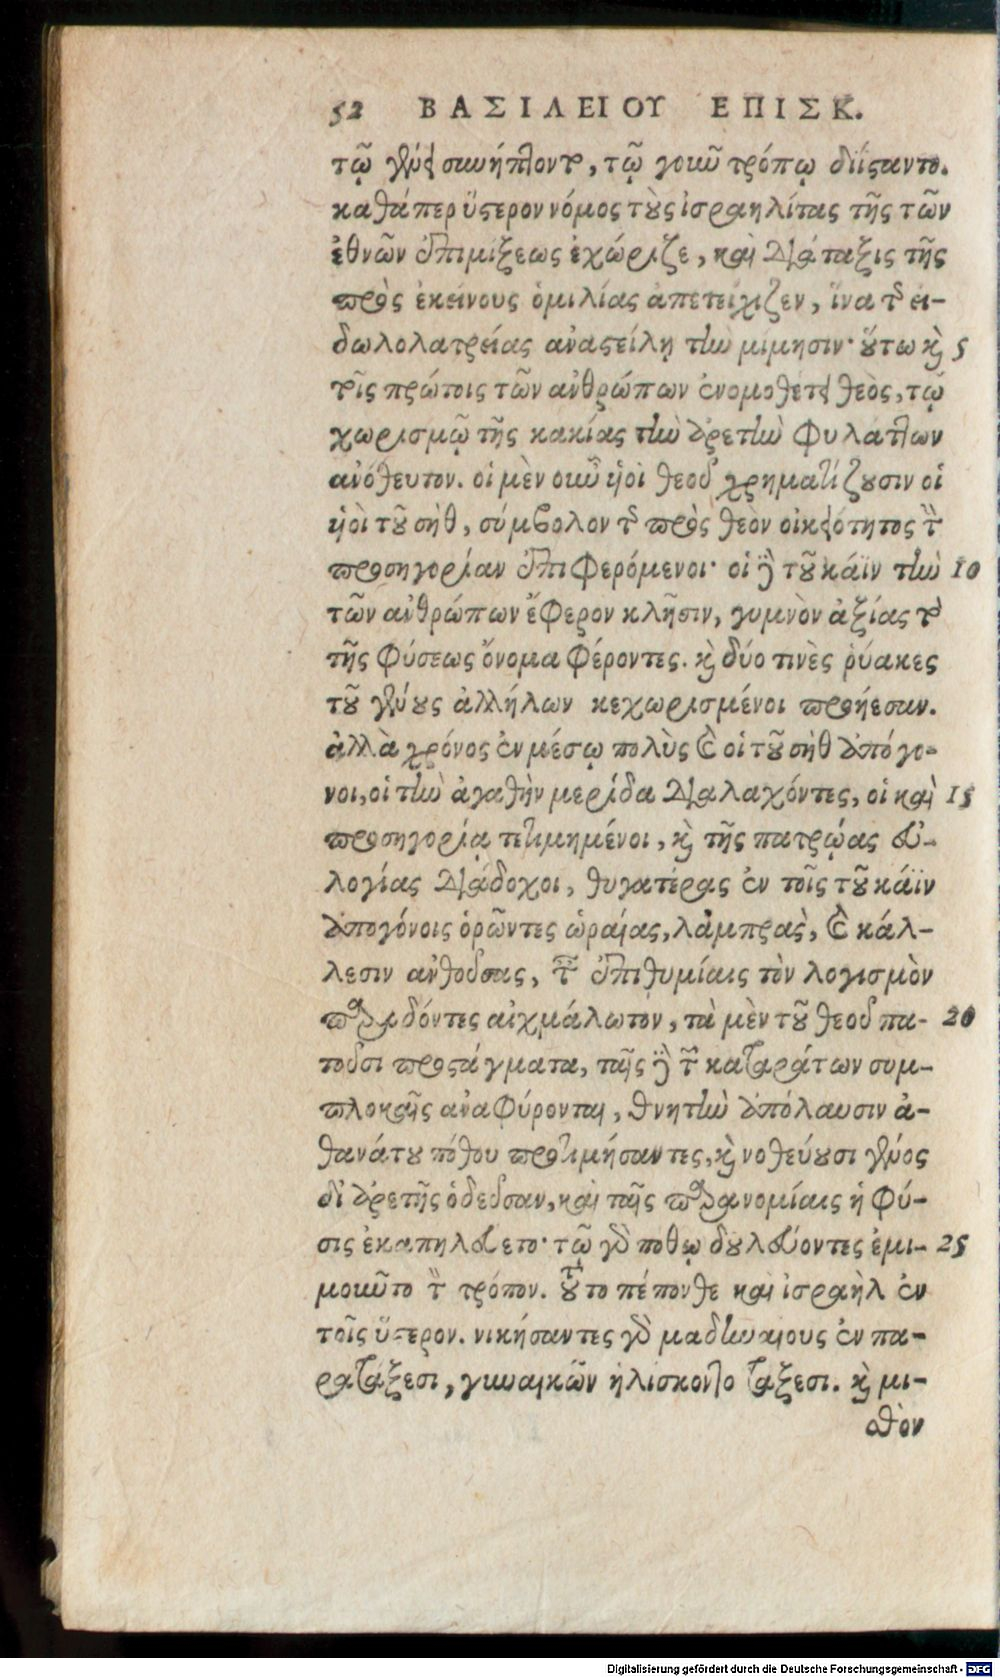 52 ΒΑΣΙΛΕΙΟΥ ΕΠΙΣΚ.
τῷ γένει συνήπτοντο, τῷ γοῦν τρόπῳ διίσαντο.
καθάπερ ὕστερον νόμος τοὺς ἰσραηλίτας τῆς τῶν
ἐθνῶν ἐπιμίξεως ἐχώριζε, καὶ διάταξις τῆς
πρὸς ἐκείνους ὁμιλίας ἀπετείχιζεν, ἵνα τῆς εἰ-
δωλολατρείας ἀναστείλῃ τὴν μίμησιν· οὕτω καὶ 5
τοῖς πρώτοις τῶν ἀνθρώπων ἐνομοθέτει θεὸς, τῷ
χωρισμῷ τῆς κακίας τὴν ἀρετὴν φυλάττων
ἀνόθευτον. οἱ μὲν οὖν υἱοὶ θεοῦ χρηματίζουσιν οἱ
υἱοὶ τοῦ σὴθ, σύμβολον τῆς πρὸς θεὸν οἰκειότητος τὴν
προσηγορίαν ἐπιφερόμενοι· οἱ δὲ τοῦ κάϊν τὴν 10
τῶν ἀνθρώπων ἔφερον κλῆσιν, γυμνὸν ἀξίας τὸ
τῆς φύσεως ὄνομα φέροντες. καὶ δύο τινὲς ῥύακες
τοῦ γένους ἀλλήλων κεχωρισμένοι προήεσαν.
ἀλλὰ χρόνος ἐν μέσῳ πολὺς καὶ οἱ τοῦ σὴθ ἀπόγο-
νοι, οἱ τὴν ἀγαθὴν μερίδα διαλαχόντες, οἱ καὶ 15
προσηγορίᾳ τετιμημένοι, καὶ τῆς πατρῴας εὐ-
λογίας διάδοχοι, θυγατέρας ἐν τοῖς τοῦ κάϊν
ἀπογόνοις ὁρῶντες ὡραίας, λαμπρὰς, καὶ κάλ-
λεσιν ἀνθούσας, ταῖς ἐπιθυμίαις τὸν λογισμὸν
παραδόντες αἰχμάλωτον, τὰ μὲν τοῦ θεοῦ πα- 20
τοῦσι προστάγματα, ταῖς δὲ τῶν καταράτων συμ-
πλοκαῖς ἀναφύρονται, θνητὴν ἀπόλαυσιν ἀ-
θανάτου πόθου προτιμήσαντες, καὶ νοθεύουσι γένος
δι' ἀρετῆς ὁδεῦσαν, καὶ ταῖς παρανομίαις ἡ φύ-
σις ἐκαπηλεύετο· τῷ γὰρ πόθῳ δουλεύοντες ἐμι- 25
μοῦντο τὸν τρόπον. τοῦτο πέπονθε καὶ ἰσραὴλ ἐν
τοῖς ὕστερον. νικήσαντες γὰρ μαδιηναίους ἐν πα-
ρατάξεσι, γυναικῶν ἡλίσκοντο τάξεσι. καὶ μι-
σθὸν
Digitalisierung gefördert durch die Deutsche Forschungsgemeinschaft - DFG